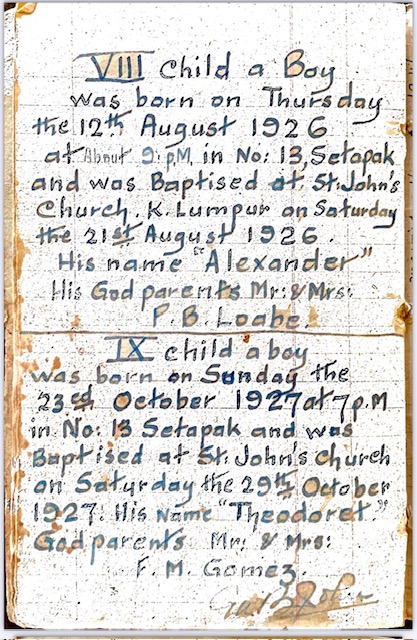 VIII Child a Boy
was born on Thursday
the 12th August 1926
at About 9: P.M. in No: 13, Setapak
and was Baptised at St. John's
Church. K. Lumpur on Saturday
the 21st August 1926.
His name "Alexander"
His God parents Mr: & Mrs:
P. B. Loabe.
IX child a boy
was born on Sunday the
23rd October 1927 at 7 P.M
in No: 13 Setapak and was
Baptised at St. John's church
on Saturday the 29th October
1927. His Name "Theodoret."
God parents Mr: & Mrs:
F. M. Gomez.